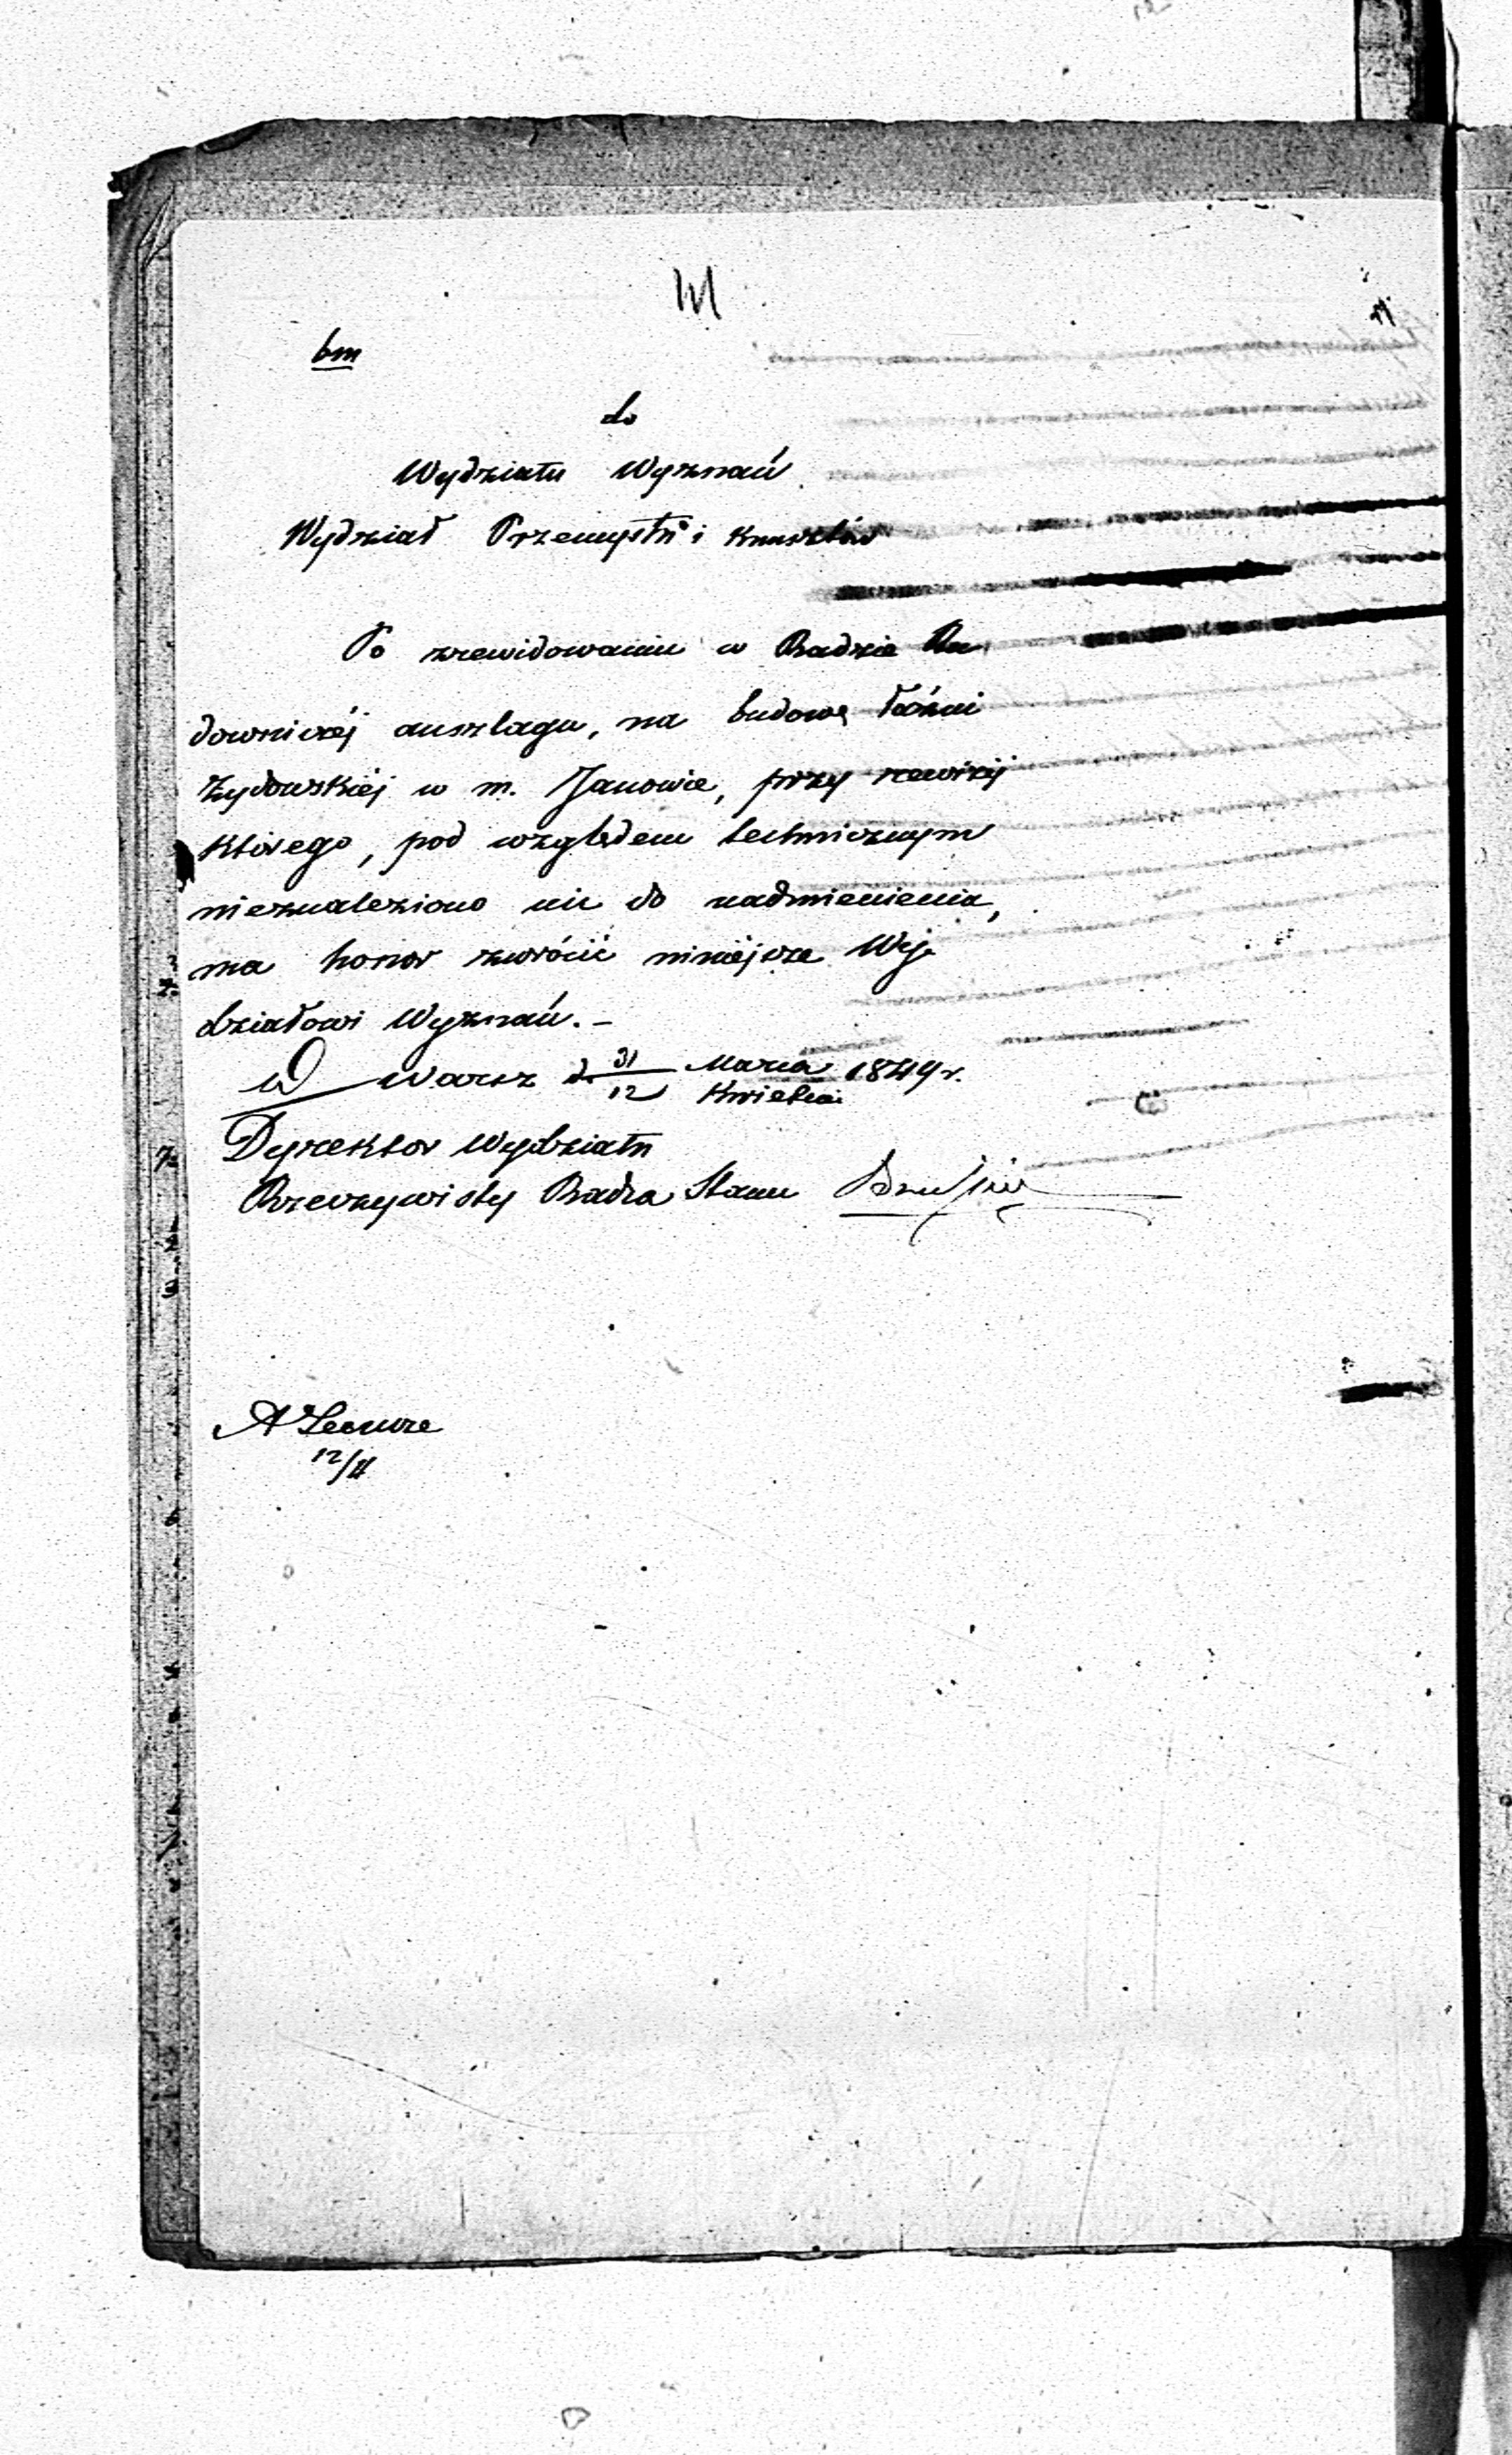 bm
do
Wydziału Wyznań
Wydział Przemysłu i Kunsztów
Po zrewidowaniu w Radzie Bu
downiczéj anszlagu, na budowę łaźni
Żydowskiéj w m. Janowie, przy rewizij
którego, pod względem technicznym
nieznaleziono nic do nadmienienia,
ma honor zwrócić niniéjsze Wy-
działowi Wyznań. –
w Warsz d. 31/12 Marca/Kwietnia 1849 r.
Dyrektor Wydziału
Rzeczywisty Radca Stanu
12/4